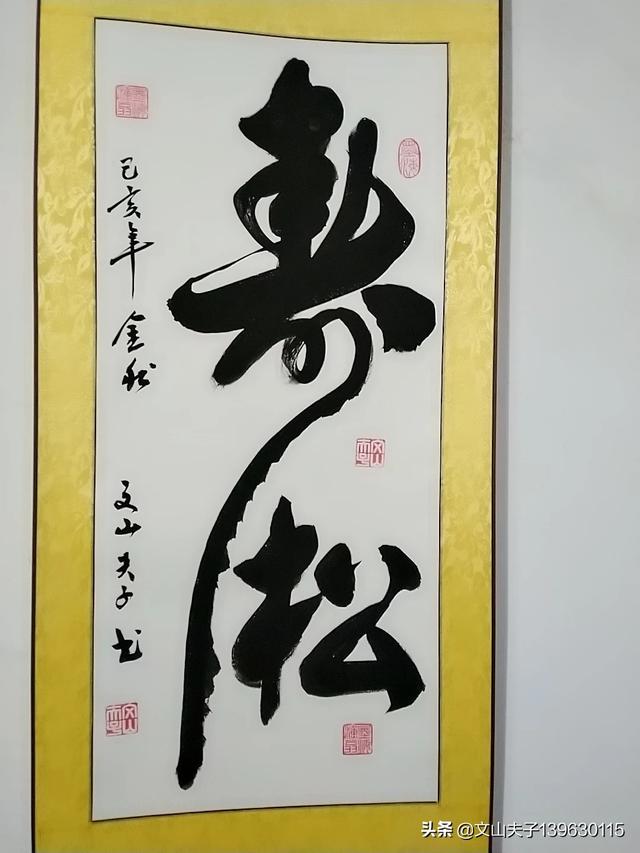 寿松
己亥年金秋
文山夫子书
头条 @文山夫子139630115